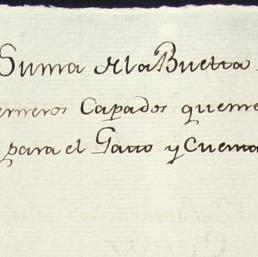 Suma de la Buelta
Carneros Capados que me
para el Gasto y Cuenta